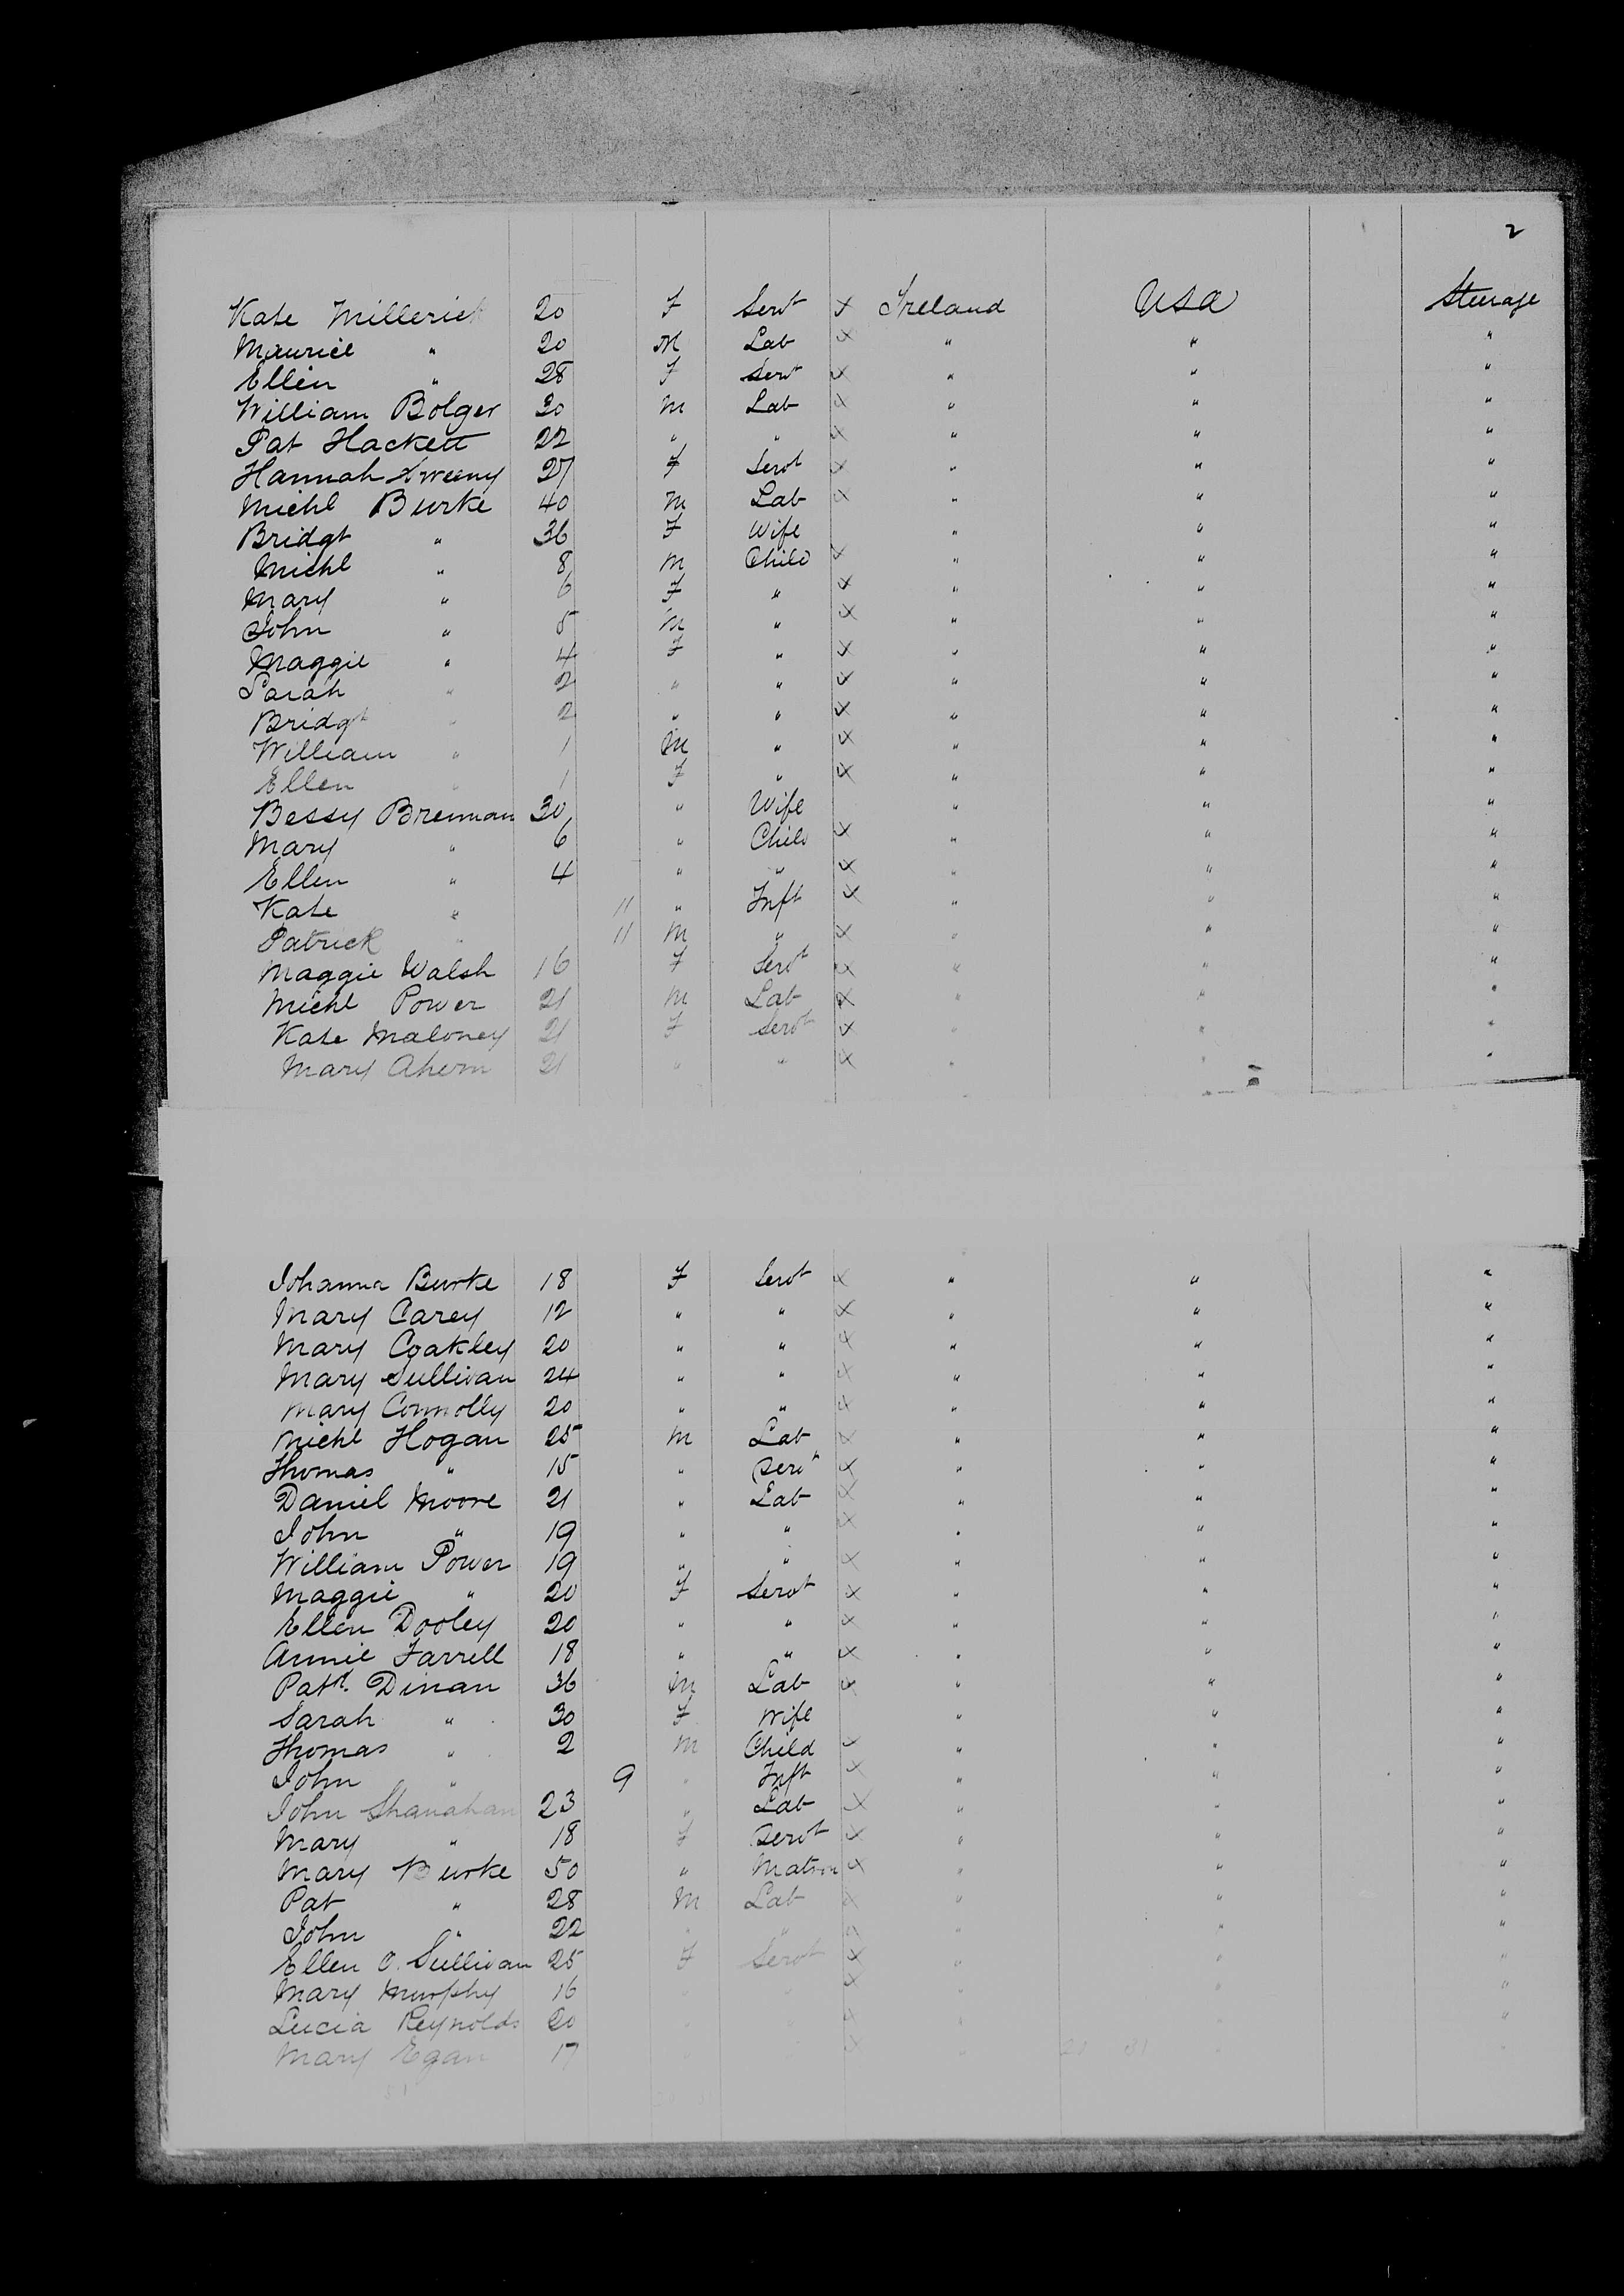 2
Kate Millerick 20 F Servt x Ireland USA Steerage
Maurice " 20 M Lab x " " "
Ellen " 28 F Servt x " " "
William Bolger 30 M Lab x " " "
Pat Hackett 22 " " x " " "
Hannah Sweeny 27 F Servt x " " "
Michl Burke 40 M Lab x " " "
Bridgt " 36 F Wife " " "
Michl " 8 M Child x " " "
Mary " 6 F " x " " "
John " 5 M " x " " "
Maggie " 4 F " x " " "
Sarah " 2 " " x " " "
Bridgt " 2 " " x " " "
William " 1 M " x " " "
Ellen " 1 F " x " " "
Bessy Brennan 30 " Wife " " "
Mary " 6 " Child x " " "
Ellen " 4 " " x " " "
Kate " 11 " Inft x " " "
Patrick " 11 M " x " " "
Maggie Walsh 16 F Servt x " " "
Michl Power 21 M Lab x " " "
Kate Maloney 21 F Servt x " " "
Mary Ahern 21 " " x " " "
Johanna Burke 18 F Servt x " " "
Mary Carey 12 " " x " " "
Mary Coakley 20 " " x " " "
Mary Sullivan 24 " " x " " "
Mary Connolly 20 " " x " " "
Michl Hogan 25 M Lab x " " "
Thomas " 15 " Servt x " " "
Daniel Moore 21 " Lab x " " "
John " 19 " " x " " "
William Power 19 " " x " " "
Maggie " 20 F Servt x " " "
Ellen Dooley 20 " " x " " "
Annie Farrell 18 " " x " " "
Patk. Dinan 36 M Lab x " " "
Sarah " 30 F Wife " " "
Thomas " 2 M Child x " " "
John " 9 " Inft x " " "
John Shanahan 23 " Lab x " " "
Mary " 18 F Servt x " " "
Mary Burke 50 " Matron x " " "
Pat " 28 M Lab x " " "
John " 22 " " x " " "
Ellen O. Sullivan 25 F Servt x " " "
Mary Murphy 16 " " x " " "
Lucia Reynolds 20 " " x " " "
Mary Egan 17 " " x " " "